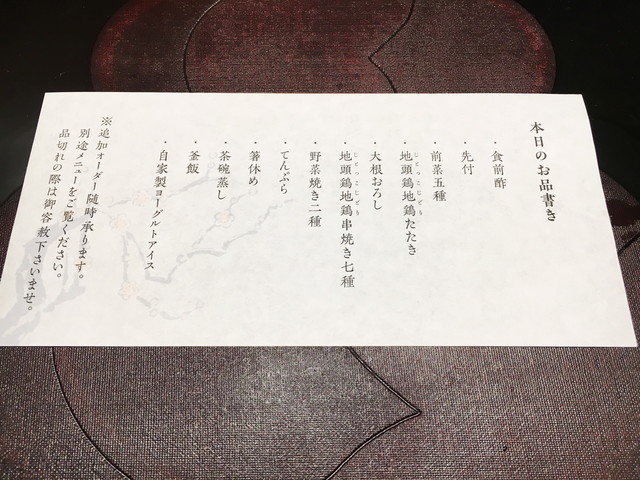 本日のお品書き
・食前酢
・先付
・前菜五種
・地頭鶏地鶏たたき
じとっこじどり
・大根おろし
・地頭鶏地鶏串焼き七種
じとっこじどり
・野菜焼き二種
・てんぷら
・箸休め
・茶碗蒸し
・釜飯
・自家製ヨーグルトアイス
※追加オーダー随時承ります。
別途メニューをご覧ください。
品切れの際は御容赦下さいませ。